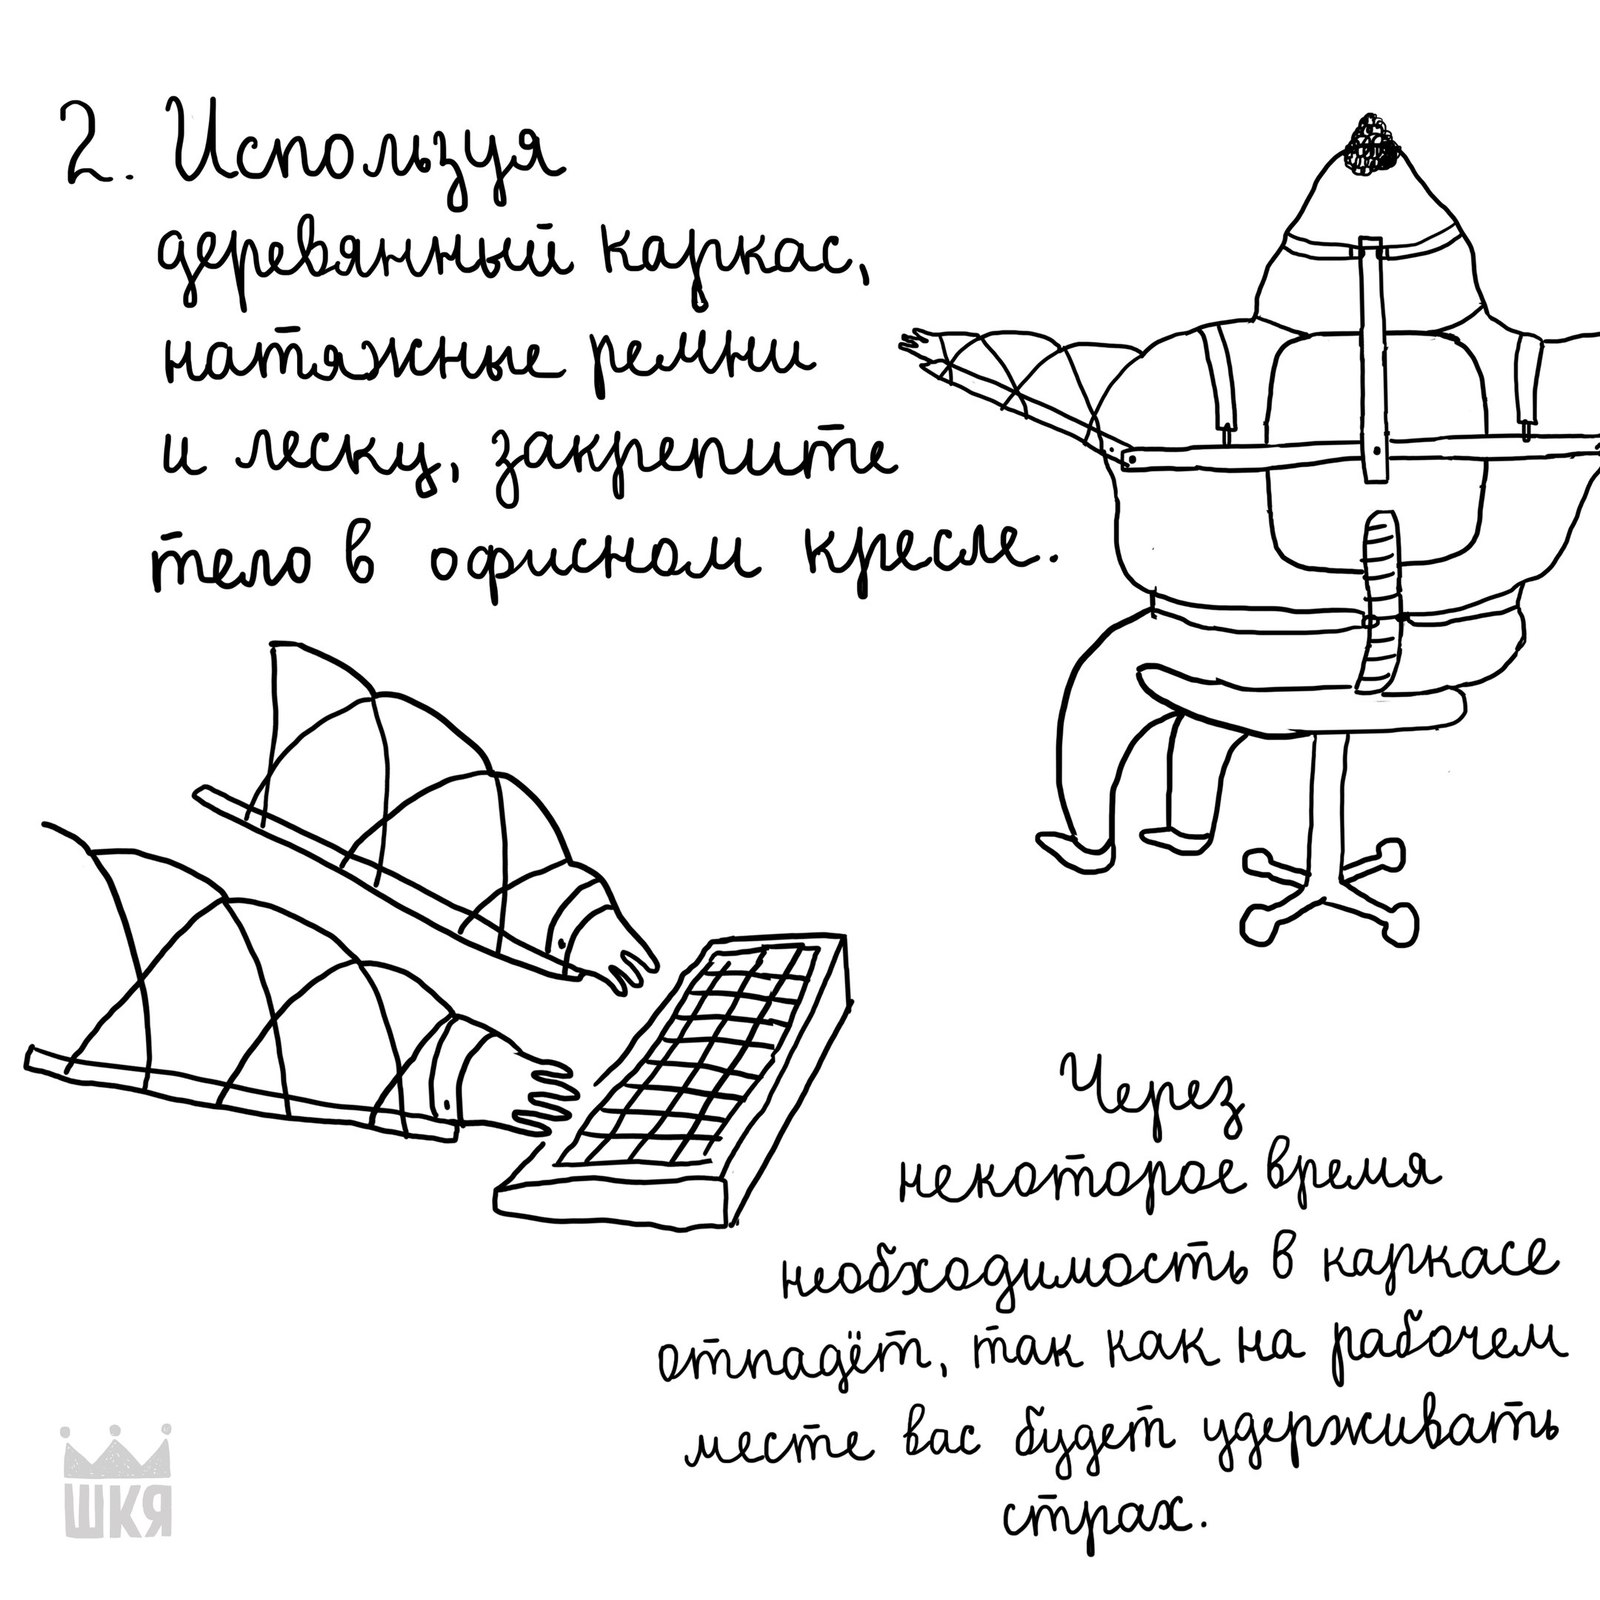 2. Используя
деревянный каркас,
натяжные ремни
и леску, закрепите
тело в офисном кресле.
Через
некоторое время
необходимость в каркасе
отпадёт, так как на рабочем
месте вас будет удерживать
страх.
ШКЯ